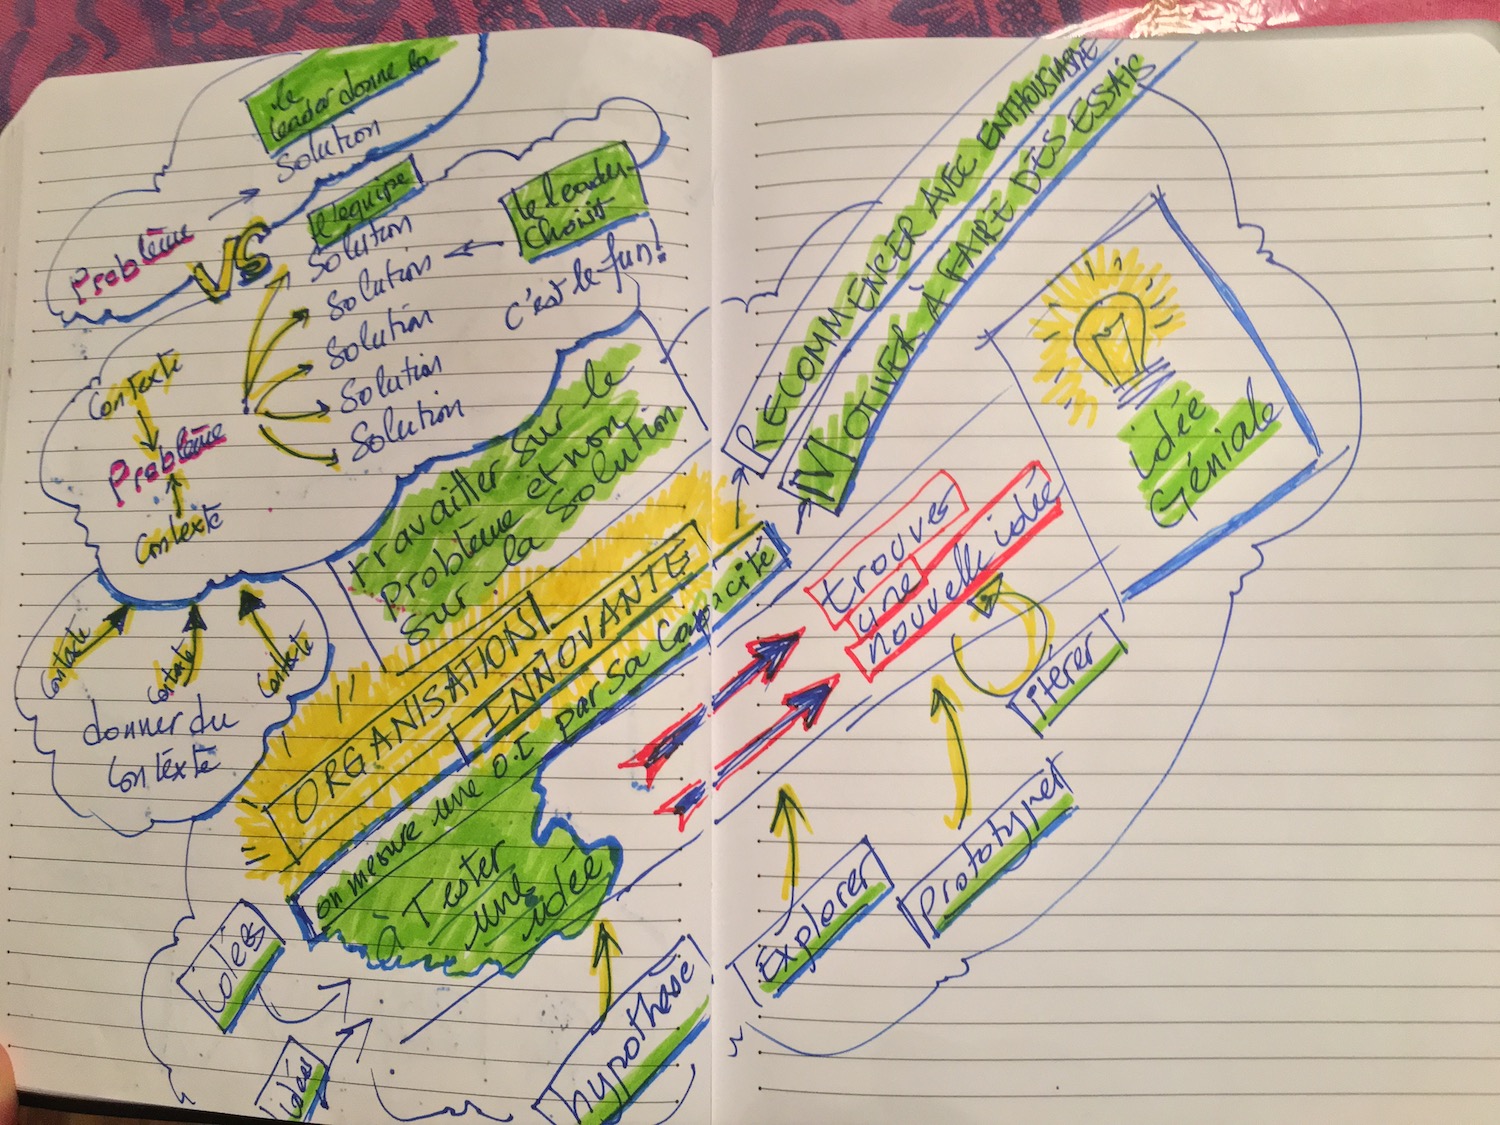 le
leader donne la
solution
Problème
VS
l'équipe
Solution
Solution
Solution
Solution
Solution
le leader
choisit
c'est le fun!
Contexte
Problème
Contexte
travailler sur le
problème et non
sur la solution
Contexte
Contexte
Contexte
donner du
Contexte
ORGANISATION
INNOVANTE
on mesure une O.I par sa Capacité
à Tester
une
idée
idées
idées
hypothèse
Explorer
Prototyper
itérer
trouver
une
nouvelle idée
RECOMMENCER AVEC ENTHOUSIASME
MOTIVER À FAIRE DES ESSAIS
idée
Géniale